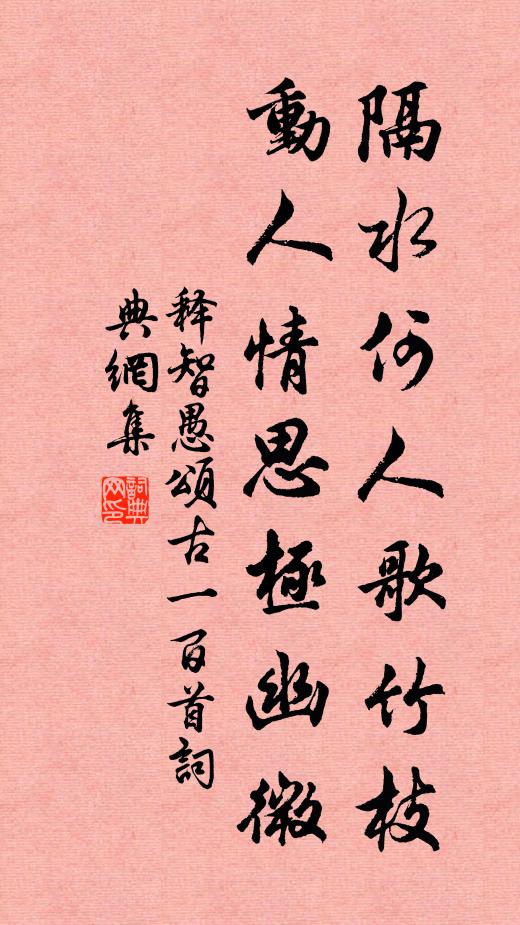 隔水何人歌竹枝
動人情思極幽微
释智愚頌古一百首詞
典網集
詞典網印